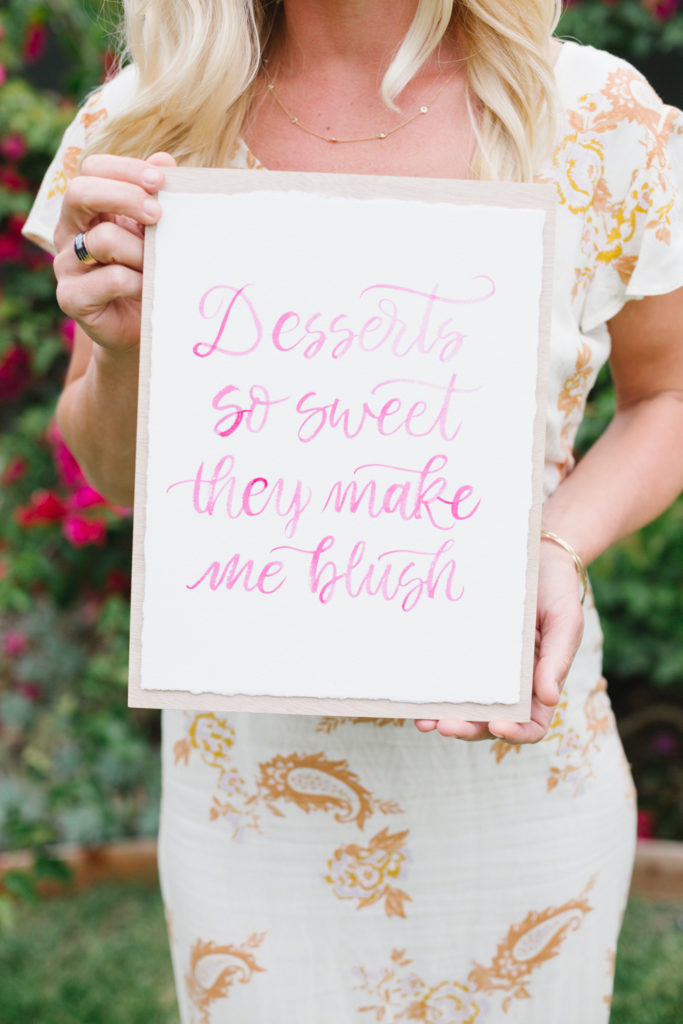 Desserts
so sweet
they make
me blush